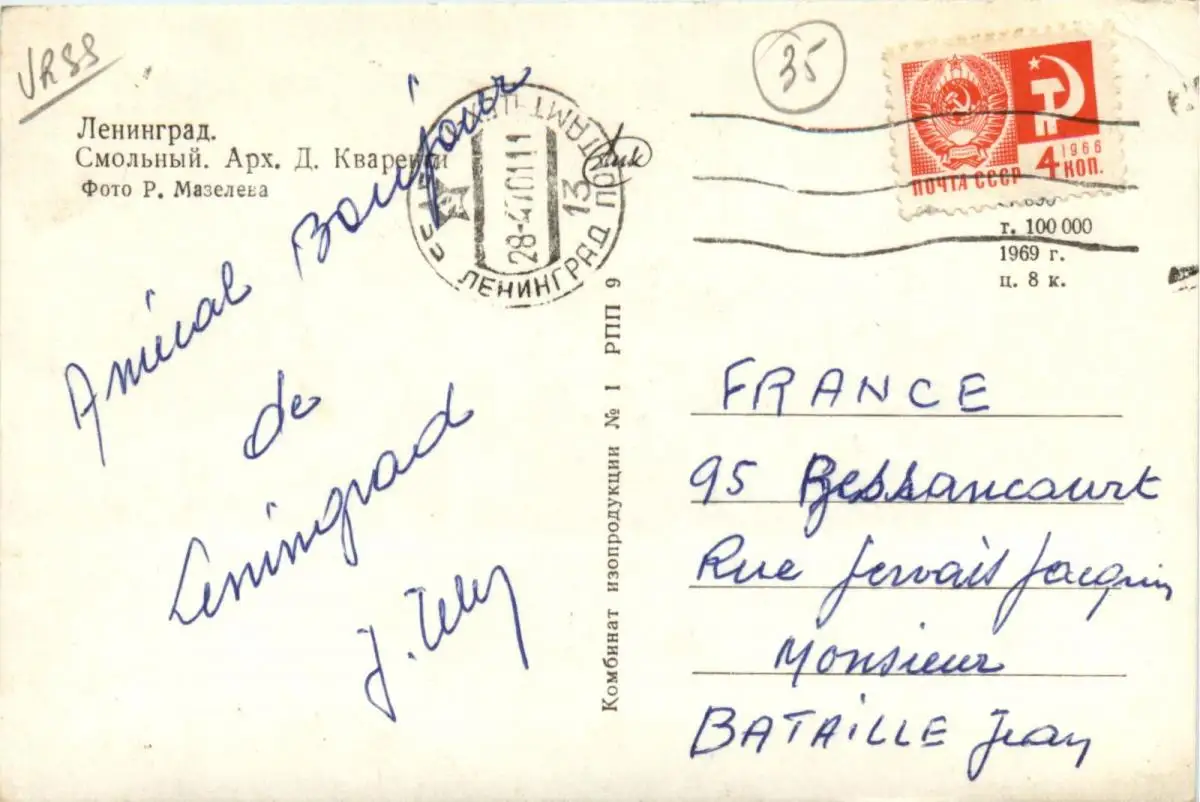 URSS
35
Ленинград.
Смольный. Арх. Д. Кваренги
Фото Р. Мазелева
ЛЕНИНГРАД ПОЧТАМТ
28-470111
13
1966
4 КОП.
ПОЧТА СССР
г. 100 000
1969 г.
ц. 8 к.
Amical Bonjour
de
Leningrad
J.
Комбинат изопродукции № 1 РПП 9
FRANCE
95 Bessancourt
Rue Gervais Jacquin
Monsieur
BATAILLE Jean